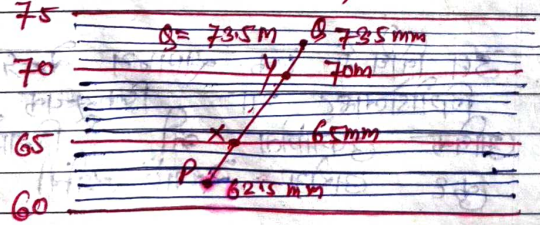 75
Q = 73.5 m Q 73.5 mm
70 Y 70m
65 X 65mm
P 62.5 mm
60